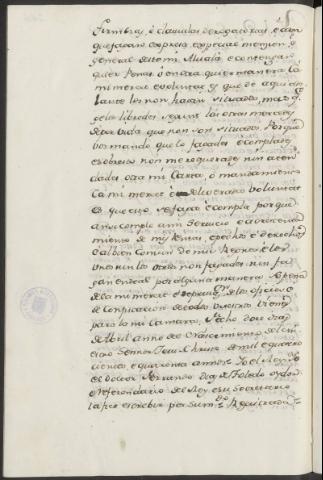 firmezas, o clausulas derogatorias, e aun
que fagan expresa, o especial mencion, o
general desta mi Aluala, e contengan
qualesquier Penas, o en otra qualquier manera Ca
mi merced, e voluntad es, que de aqui adelante
lante les non hayan situados, mas que
gelos libredes segun las otras mercedes
de por vida, que non son situados. Porque
vos mando, que lo fagades, e complades
e sobre esto non me requerades, nin aten
dades otra mi Carta, o mandamiento
Ca mi merced, e deliverada voluntad
es que esto se faga, e cumpla, porque
ansi cumple a mi servicio, e a acrecenta
miento de mis Rentas, e pechos, e derechos
e al bien Comun de mis Regnos, e los
unos nin los otros non fagades nin fa
gan ende al por alguna manera, so pena
de la mi merced e de privacion de los oficios, e
de Confiscacion de todos vuestros vienes
para la mi Camara. Fecho doce dias
de Abril anno del Nascimiento del nues
tro Sennor Jesu Christo de mil e quatro
cientos e quarenta annos. Yo el Rey. Yo
el doctor Ferrando Diaz de Toledo oydor
e referendario del Rey, e su Secretario
la fice escrebir por su mandado. Registrada